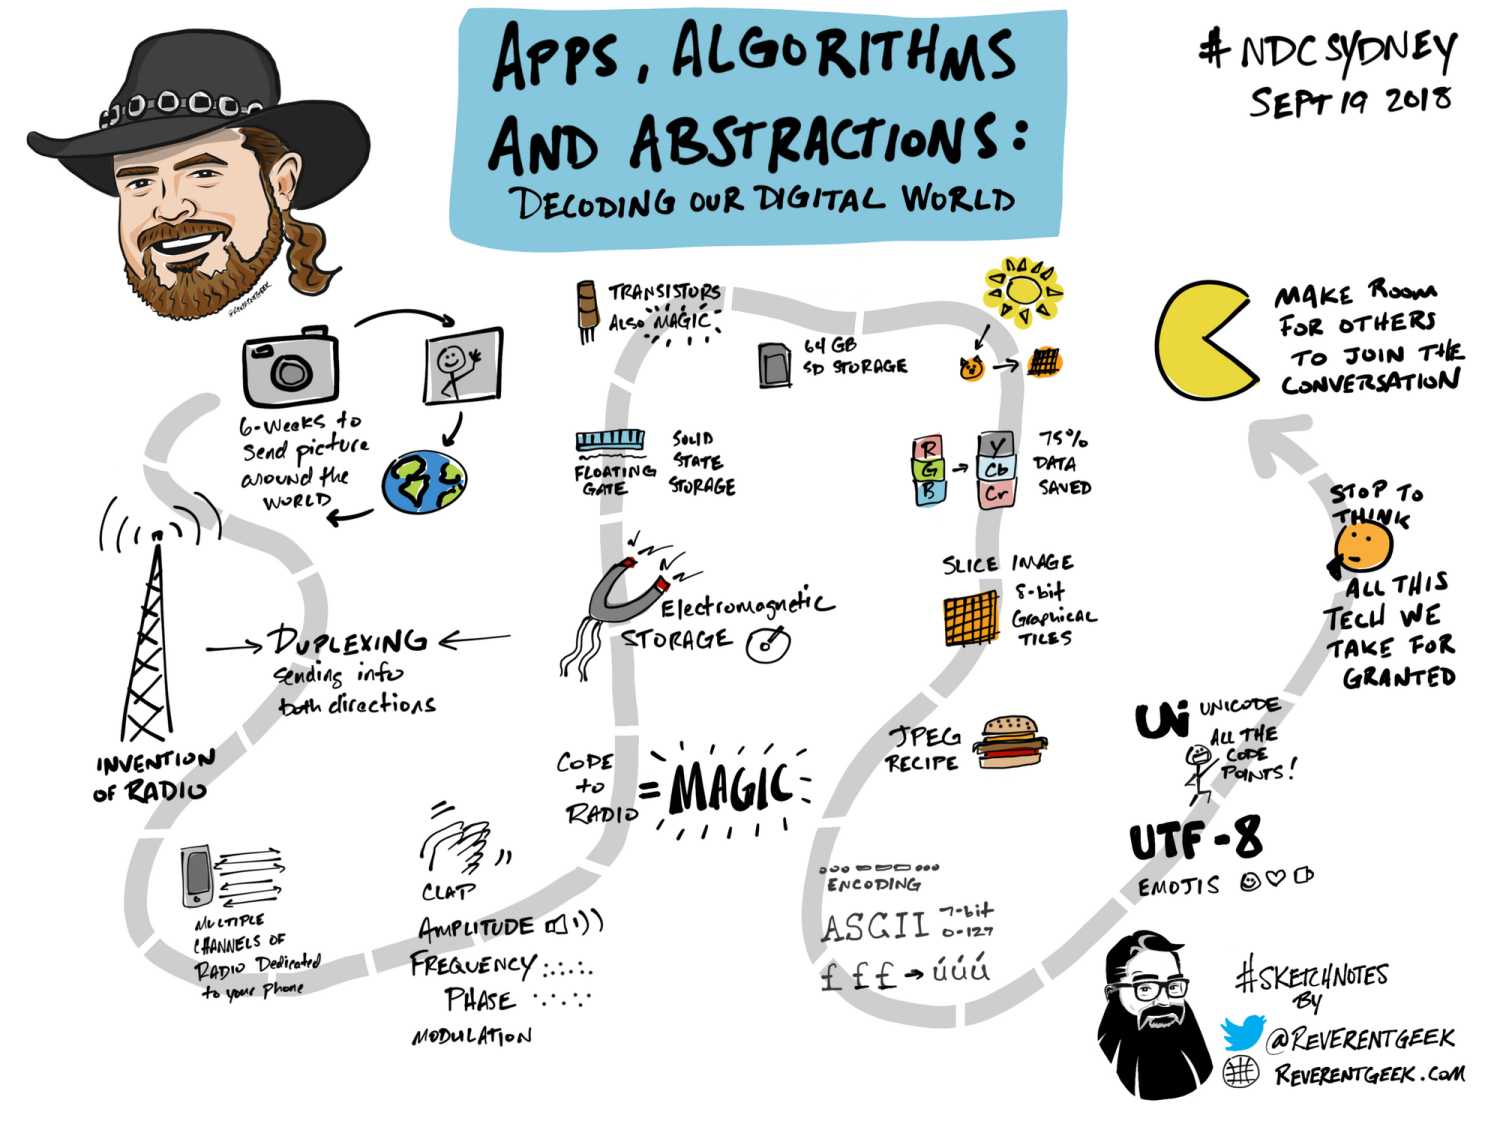 APPS, ALGORITHMS
AND ABSTRACTIONS:
DECODING OUR DIGITAL WORLD
#NDCSYDNEY
SEPT 19 2018
@REVERENTGEEK
6-Weeks to
Send picture
around the
WORLD
INVENTION
OF RADIO
DUPLEXING
sending info
both directions
MULTIPLE
CHANNELS OF
RADIO Dedicated
to your phone
CLAP
AMPLITUDE
FREQUENCY
PHASE
MODULATION
CODE
to
RADIO
= MAGIC
Electromagnetic
STORAGE
FLOATING
GATE
SOLID
STATE
STORAGE
TRANSISTORS
ALSO MAGIC
64 GB
SD STORAGE
R
G
B
Y
Cb
Cr
75%
DATA
SAVED
SLICE IMAGE
8-bit
Graphical
TILES
JPEG
RECIPE
ENCODING
ASCII 7-bit
0-127
£ £ £ → úúú
UTF-8
EMOJIS
Uni UNICODE
ALL THE
CODE
POINTS!
STOP TO
THINK
ALL THIS
TECH WE
TAKE FOR
GRANTED
MAKE ROOM
FOR OTHERS
TO JOIN THE
CONVERSATION
#SKETCHNOTES
BY
@REVERENTGEEK
REVERENTGEEK.COM